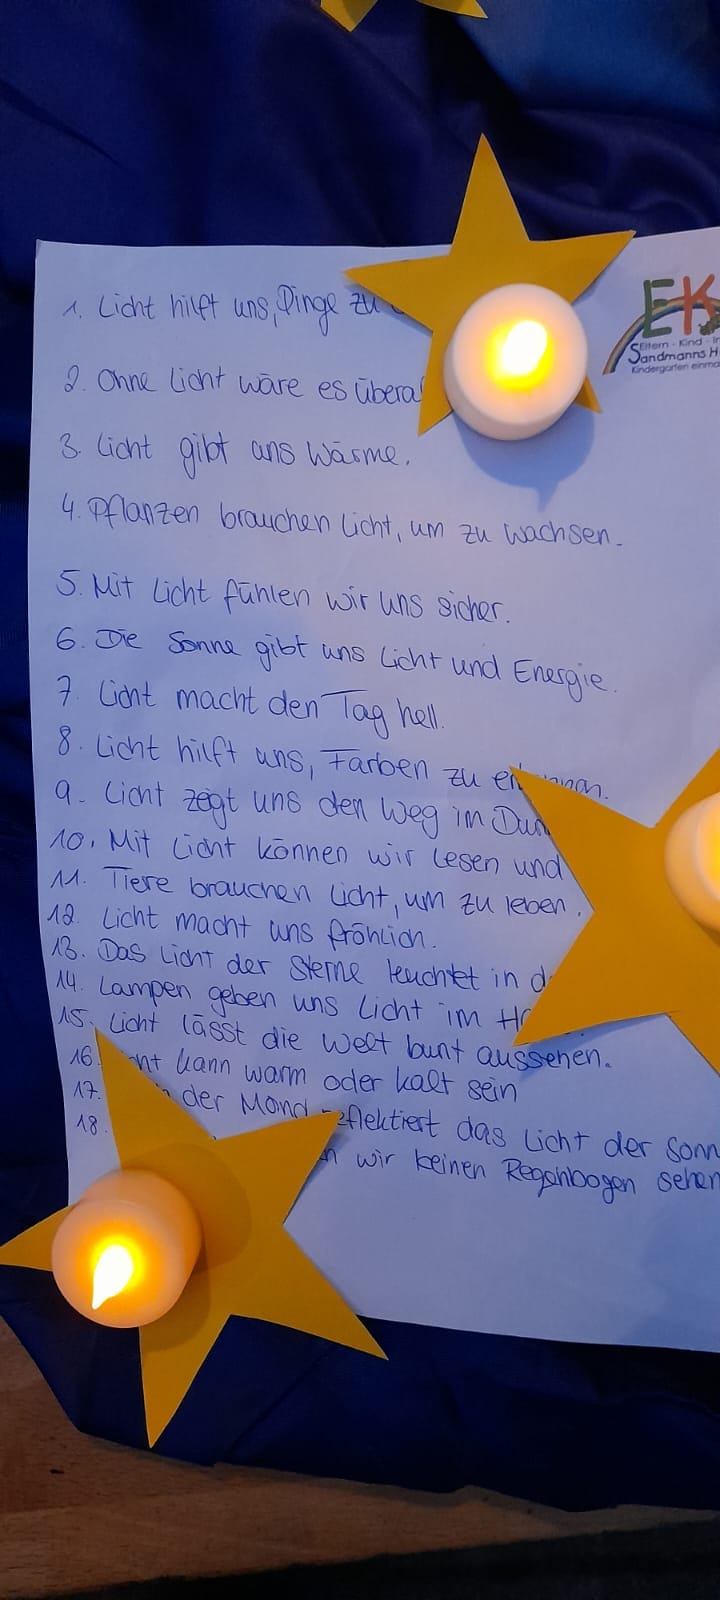 1. Licht hilft uns, Dinge zu
EK
Eltern - Kind -
Sandmanns H
Kindergarten einma
2. Ohne Licht wäre es übera
3. Licht gibt uns Wärme.
4. Pflanzen brauchen Licht, um zu wachsen.
5. Mit Licht fühlen wir uns sicher.
6. Die Sonne gibt uns Licht und Energie.
7. Licht macht den Tag hell.
8. Licht hilft uns, Farben zu
9. Licht zeigt uns den Weg im Dun
10. Mit Licht können wir lesen und
11. Tiere brauchen Licht, um zu leben.
12. Licht macht uns fröhlich.
13. Das Licht der Sterne leuchtet in d
14. Lampen geben uns Licht im Ha
15. Licht lässt die Welt bunt aussehen.
16. kann warm oder kalt sein
17. der Mond reflektiert das Licht der Sonn
18. wir keinen Regenbogen sehen